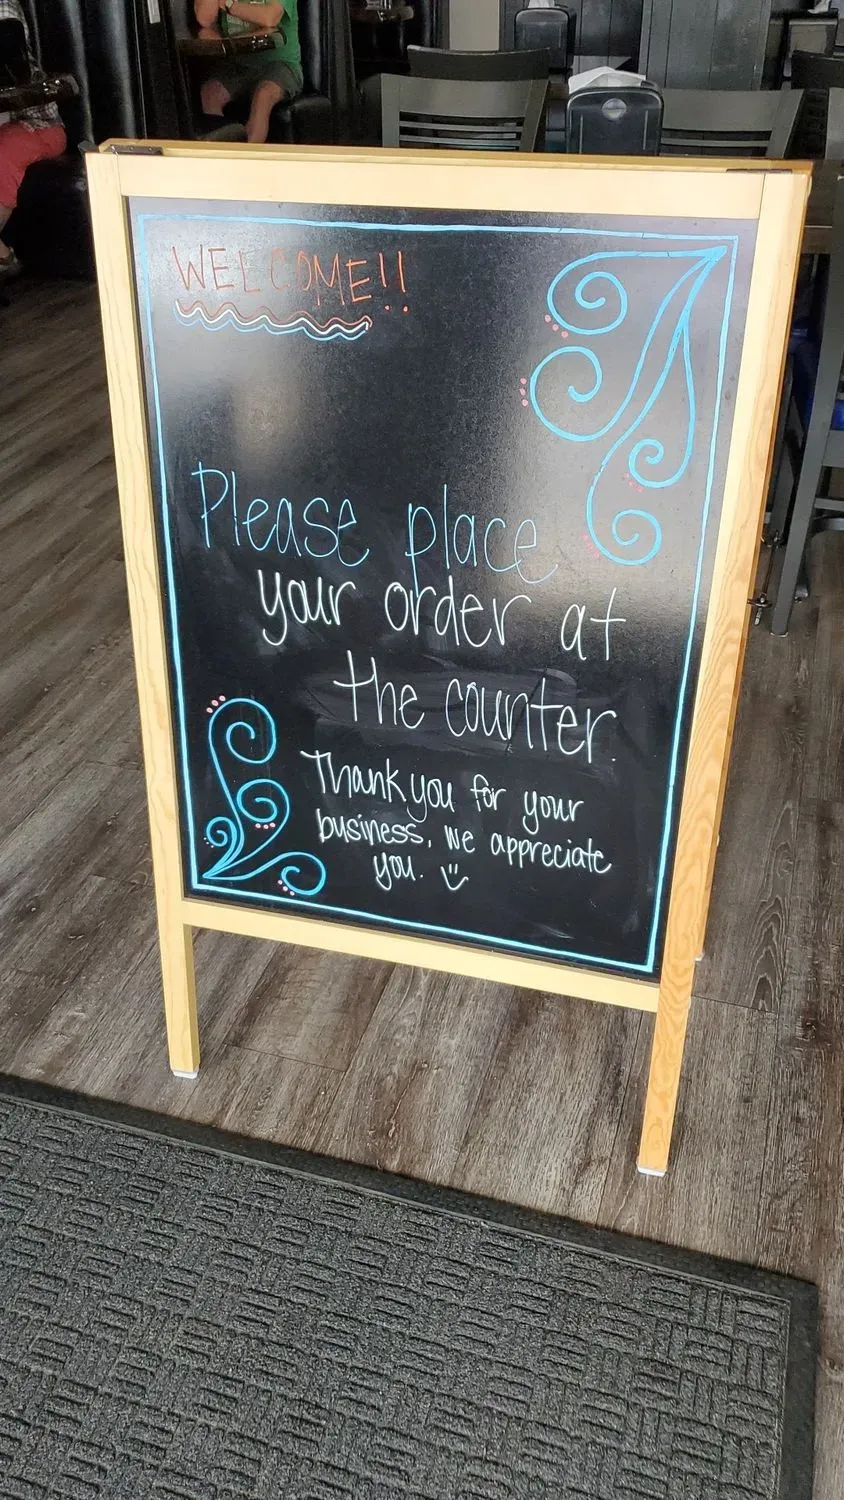 WELCOME!!
Please place
your order at
the counter.
Thank you for your
business, we appreciate
you.